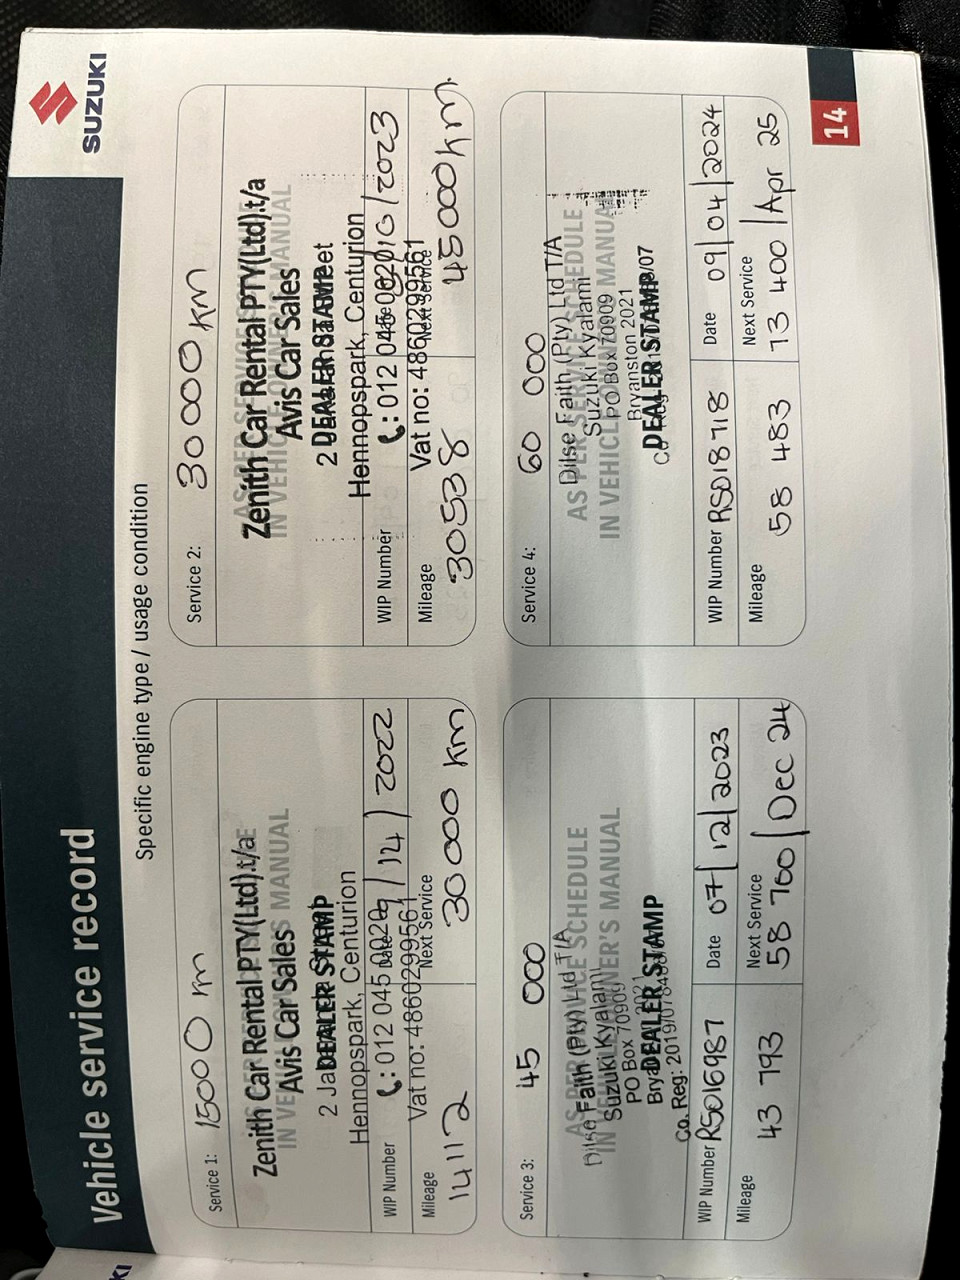 SUZUKI
Vehicle service record
Specific engine type / usage condition
Service 1: 15000 km
Zenith Car Rental PTY(Ltd).t/a
IN VEHICLE OWNER'S MANUAL
Avis Car Sales
DEALER STAMP
Hennopspark, Centurion
WIP Number
Date
14 / 2022
: 012 045 0020
Vat no: 4860299561
Mileage
14112
Next Service
30 000 km
Service 2: 30000 km
AS PER SERVICE SCHEDULE
Zenith Car Rental PTY(Ltd).t/a
IN VEHICLE OWNER'S MANUAL
Avis Car Sales
DEALER STAMP
Hennopspark, Centurion
WIP Number
Date
/ 2023
: 012 045 0020
Vat no: 4860299561
Mileage
30538
Next Service
45000 km.
Service 3: 45 000
AS PER SERVICE SCHEDULE
Dilse Faith (Pty) Ltd T/A
IN VEHICLE OWNER'S MANUAL
Suzuki Kyalami
PO Box 70909
2021
DEALER STAMP
Co. Reg: 2019/
WIP Number RS016987
Date 07/12/2023
Mileage
43 793
Next Service
58 700 / Dec 24
Service 4: 60 000
Dilse Faith (Pty) Ltd T/A
AS PER SERVICE SCHEDULE
Suzuki Kyalami
IN VEHICLE OWNER'S MANUAL
PO Box 70909
Bryanston 2021
DEALER STAMP
/07
WIP Number RS018718
Date 09/04/2024
Mileage
58 483
Next Service
73 400 / Apr 25
14